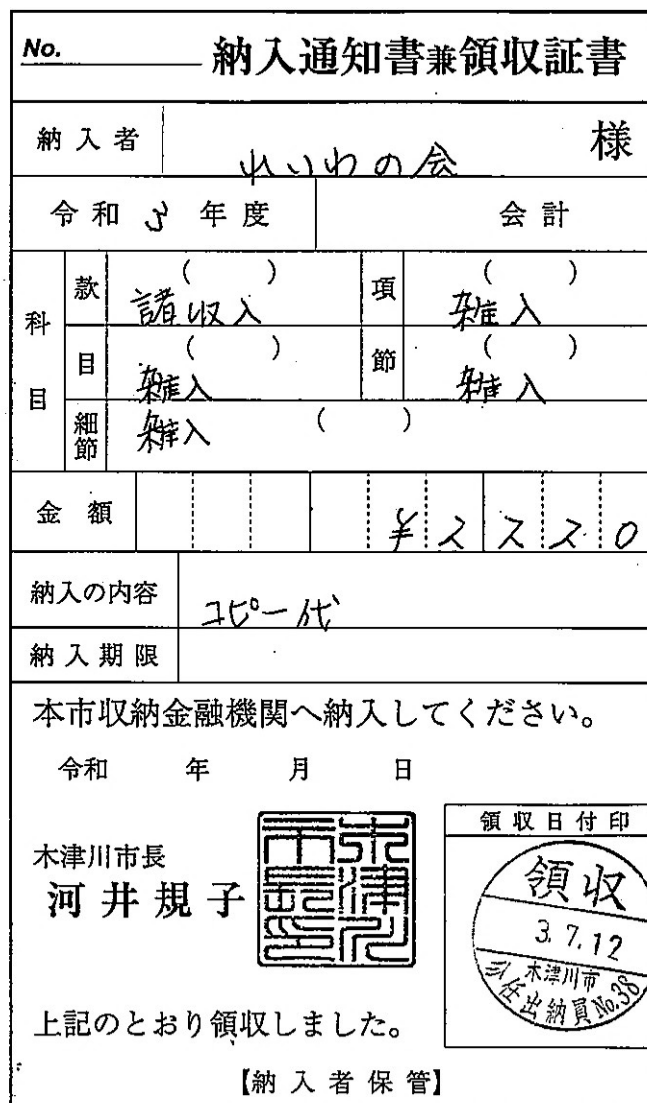 No. 納入通知書兼領収証書
納入者 れいわの会 様
令和 3 年度 会計
科目 款 ( ) 諸収入 項 ( ) 雑入
目 ( ) 雑入 節 ( ) 雑入
細節 雑入 ( )
金額 ¥2220
納入の内容 コピー代
納入期限
本市収納金融機関へ納入してください。
令和 年 月 日
木津川市長
河井規子
木津川市長之印
領収日付印
領収
3.7.12
木津川市
分任出納員No.38
上記のとおり領収しました。
【納入者保管】